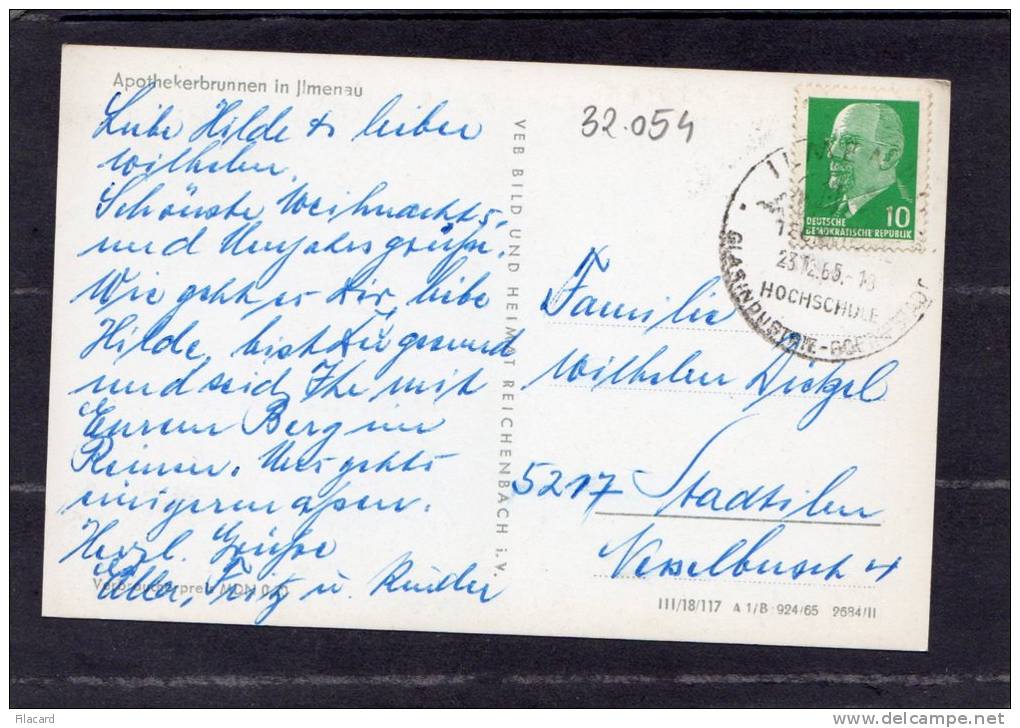 Apothekerbrunnen in Jlmenau
Liebe Hilde & lieber
Wilhelm.
Schönste Weihnachts-
und Neujahrsgrüße.
Wie geht es Dir, liebe
Hilde, bist Du gesund
und seid Ihr mit
Eurem Berg im
Reinen. Uns gehts
einigermaßen.
Herzl. Grüße
Fritz u. Kinder
Verbraucherpreis MDN
VEB BILD UND HEIMAT REICHENBACH i. V.
32.054
DEUTSCHE
DEMOKRATISCHE REPUBLIK
10
ILMENAU
23.12.65.-18
HOCHSCHULE
GLASINDUSTRIE-
Familie
Wilhelm Dietzel
5217 Stadtilm
Kesselbusch 4
III/18/117 A 1/B 924/65 2684/II
© Filacard
delcampe.net